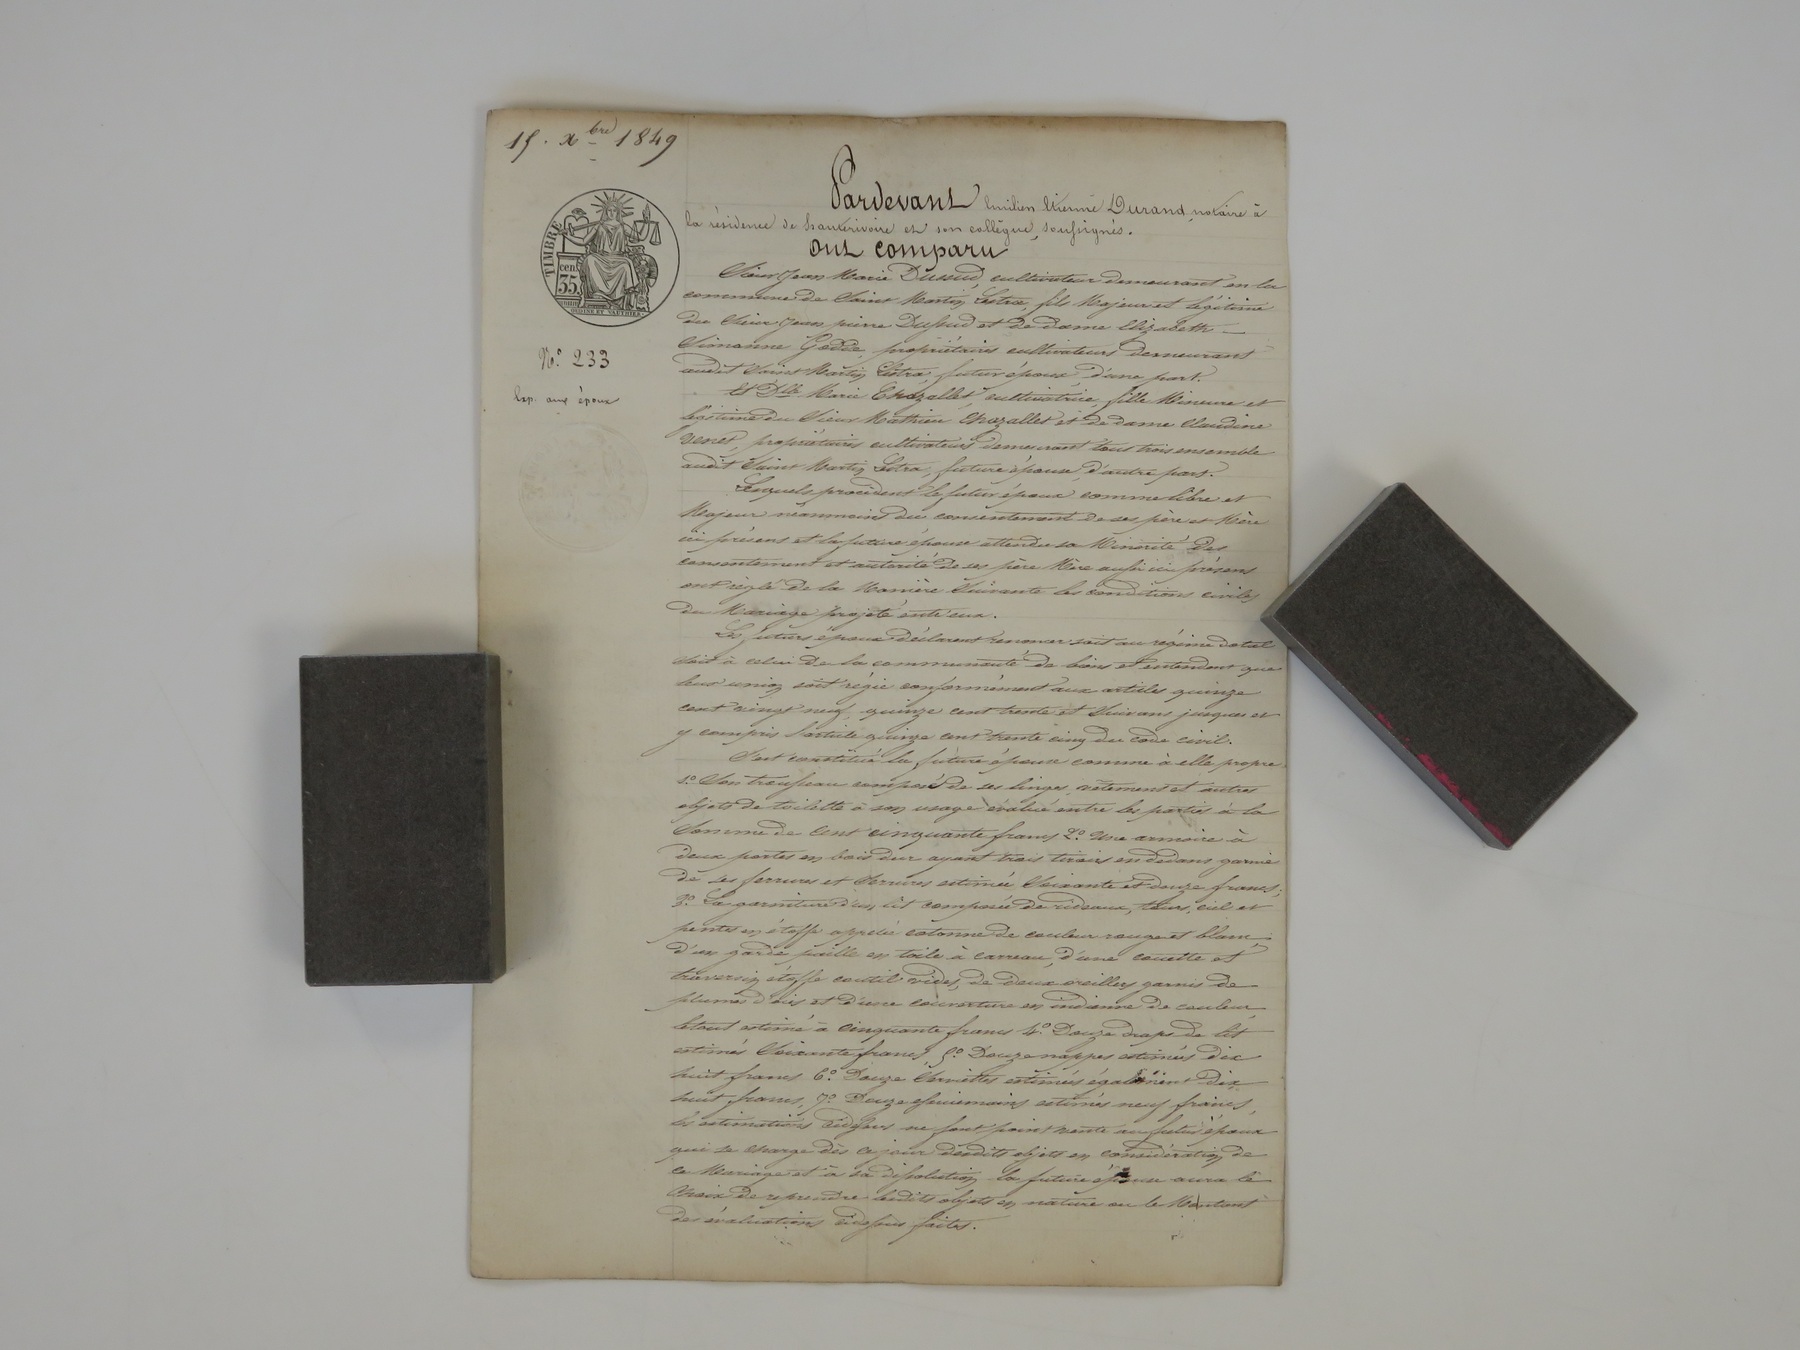 15. xbre 1849
TIMBRE
cen.
35.
N.º 233
Exp. aux époux
Pardevant Emilien Etienne Durand, notaire à
la résidence de hauterivoire et son collègue, soussignés.
ont comparu
Sieur Jean Marie Dussud, cultivateur demeurant en la
commune de Saint Martin Lestra, fils Majeur et légitime
du Sieur Jean pierre Dussud et de dame Elizabeth
Simonne Godde, propriétaires cultivateurs demeurans
audit Saint Martin Lestra, futur époux d'une part.
Et Dlle Marie Chazallet, cultivatrice, fille Mineure et
légitime du Sieur Mathieu Chazallet et de dame Claudine
venet, propriétaires cultivateurs demeurant tous trois ensemble
audit Saint Martin Lestra, future épouse, d'autre part.
Lesquels procédent le futur époux comme libre et
Majeur néanmoins du consentement de ses père et Mère
ici présens et la future épouse attendu sa Minorité des
consentement et autorité de ses père Mère aussi ici présens
ont réglé de la Manière Suivante les conditions civiles
du Mariage projeté entr'eux.
Les futurs époux déclarent renoncer soit au régime dotal
soit à celui de la communauté de biens et entendent que
leur union soit régie conformément aux articles quinze
cent vingt neuf, quinze cent trente et Suivans jusques et
y compris l'article quinze cent trente cinq du code civil.
S'est constitué la future épouse comme à elle propre
1º Son trousseau composé de ses linges, vêtement et autres
objets de toilette à son usage évalué entre les parties à la
Somme de Cent cinquante francs 2º Une armoire à
deux portes en bois dur ayant trois tiroirs en dedans garnie
de ses ferrures et Serrures estimée Soixante et douze francs;
3º La garniture d'un lit composée de rideaux, tours, ciel et
pentes en étoffe appelée cotonne de couleur rouge et blanc
d'un garde paille en toile à carreau, d'une couette et
traversin étoffe coutil vides, de deux oreillers garnis de
plumes d'oies et d'une couverture en indienne de couleur
le tout estimé à cinquante francs 4º Douze draps de lit
estimés Soixante francs, 5º Douze nappes estimées dix
huit francs 6º Douze Serviettes estimées également dix
huit francs, 7º Douze essuiemains estimés neuf francs,
les estimations cidessus ne font point vente au futur époux
qui se charge dès ce jour desdits objets en considération de
ce Mariage et à sa dissolution la future épouse aura le
Choix de reprendre lesdits objets en nature ou le Montant
des évaluations cidessus faites.